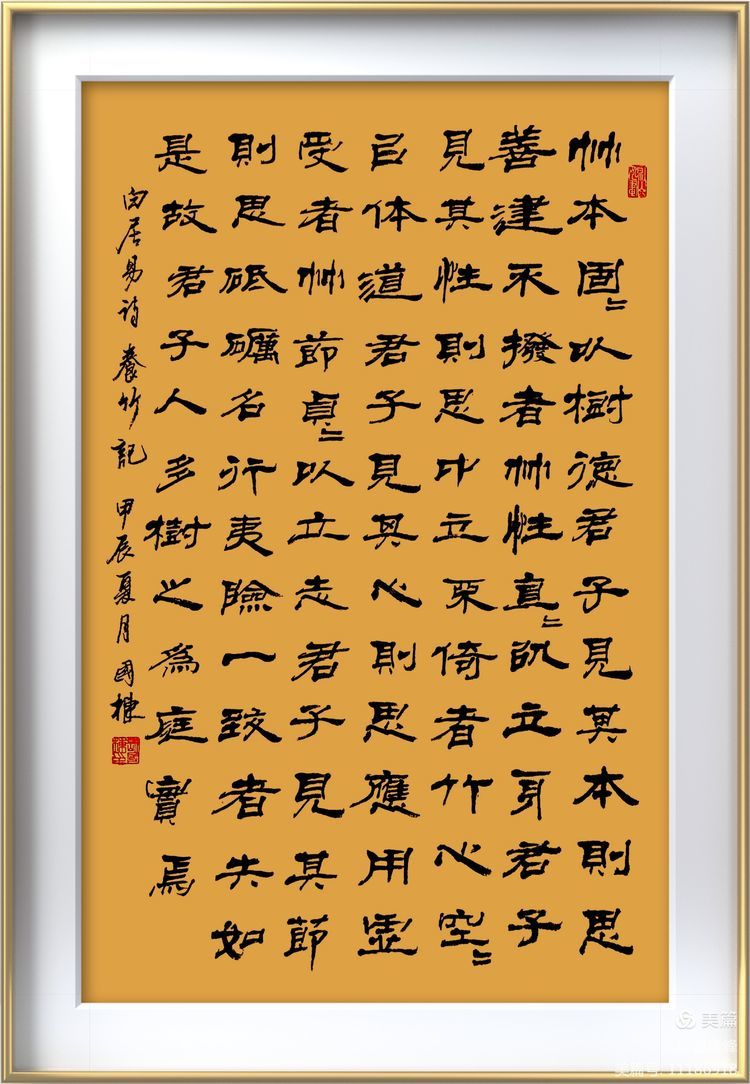 竹本固〻以樹德君子見其本則思
善建不撥者竹性直〻以立身君子
見其性則思中立不倚者竹心空〻
以体道君子見其心則思應用虛
受者竹節貞〻以立志君子見其節
則思砥礪名行夷險一致者夫如
是故君子人多樹之為庭實焉
白居易詩養竹記 甲辰夏月 國棟
美篇